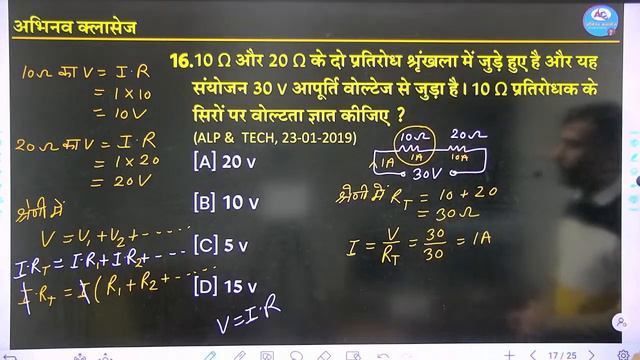 अभिनव क्लासेज
16. 10 Ω और 20 Ω के दो प्रतिरोध श्रृंखला में जुड़े हुए है और यह
संयोजन 30 V आपूर्ति वोल्टेज से जुड़ा है। 10 Ω प्रतिरोधक के
सिरों पर वोल्टता ज्ञात कीजिए ?
(ALP & TECH, 23-01-2019)
[A] 20 v
[B] 10 v
[C] 5 v
[D] 15 v
10Ω का V = I·R
= 1×10
= 10V
20Ω का V = I·R
= 1×20
= 20V
श्रेणी में
V = V₁+V₂+-----
I·R_T = I·R₁+I·R₂+----
I·R_T = I(R₁+R₂+-----
V = I·R
10Ω 20Ω
1A 1A 10A
30V
श्रेणी में R_T = 10+20
= 30Ω
I = V/R_T = 30/30 = 1A
17 / 25